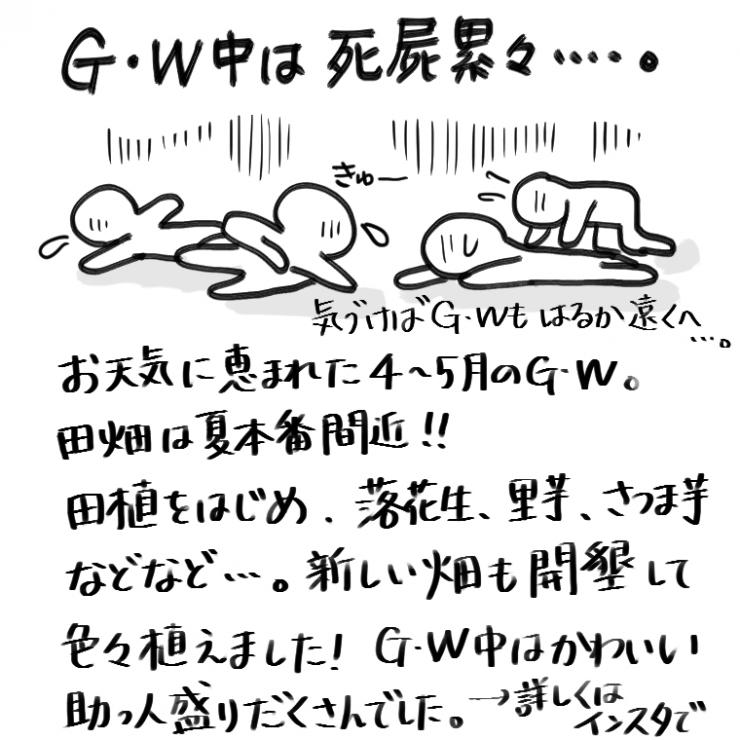 G・W中は 死屍累々‥‥。
きゅー
気づけばG・Wもはるか遠くへ…。
お天気に恵まれた4〜5月のG・W。
田畑は夏本番間近!!
田植をはじめ、落花生、里芋、さつま芋
などなど…。新しい畑も開墾して
色々植えました! G・W中はかわいい
助っ人盛りだくさんでした。→詳しくは
インスタで